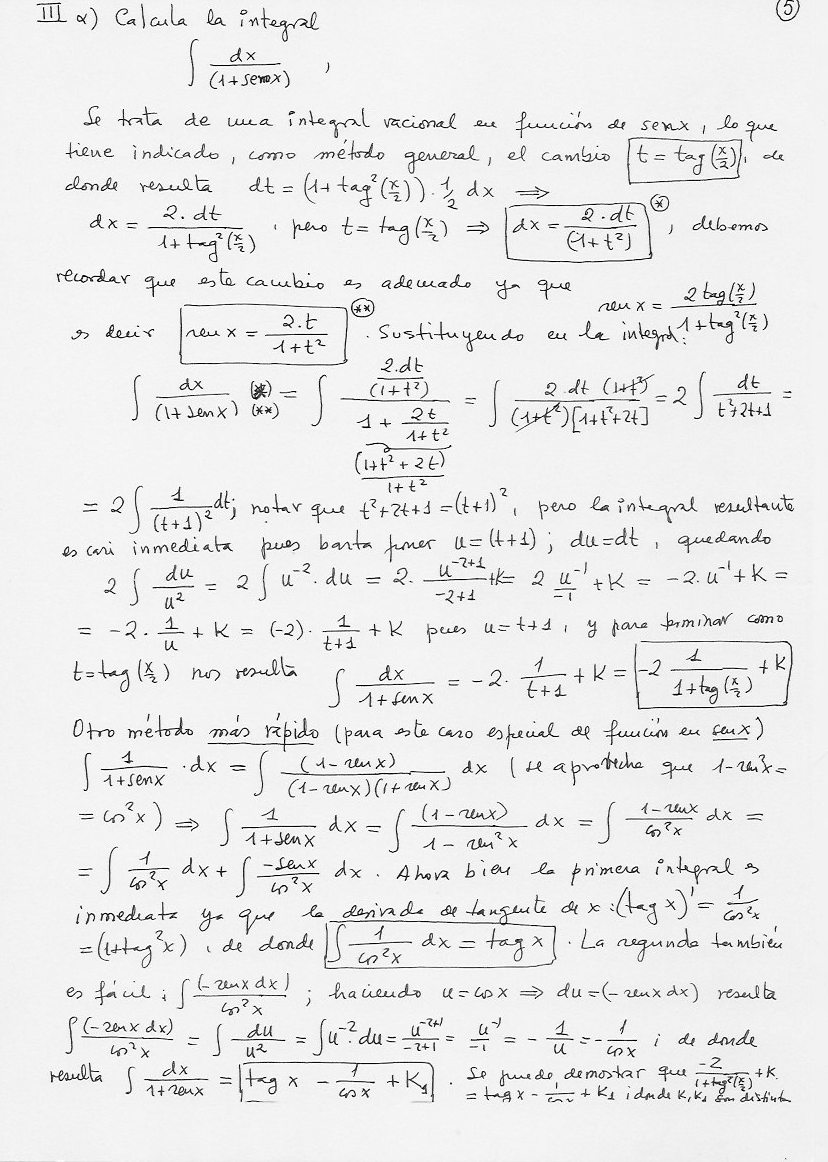 III α) Calcula la integral ⑤
∫ dx/(1+senx) ,
Se trata de una integral racional en función de senx, lo que
tiene indicado, como método general, el cambio t = tag(x/2), de
donde resulta dt = (1+tag²(x/2))·1/2 dx ⇒
dx = 2·dt/(1+tag²(x/2)), pero t = tag(x/2) ⇒ dx = 2·dt/(1+t²) (*), debemos
recordar que este cambio es adecuado ya que sen x = 2tag(x/2)/(1+tag²(x/2))
es decir sen x = 2·t/(1+t²) (**). Sustituyendo en la integral:
∫ dx/(1+senx) (*)(**) = ∫ (2·dt/(1+t²))/(1 + 2t/(1+t²)) = ∫ 2·dt (1+t²)/((1+t²)[1+t²+2t]) = 2∫ dt/(t²+2t+1) =
(1+t²+2t)/(1+t²)
= 2∫ 1/(t+1)² dt; notar que t²+2t+1=(t+1)², pero la integral resultante
es casi inmediata pues basta poner u=(t+1); du=dt, quedando
2∫ du/u² = 2∫ u⁻²·du = 2· u⁻²⁺¹/(-2+1) +K = 2 u⁻¹/-1 + K = -2·u⁻¹ + K =
= -2· 1/u + K = (-2)· 1/(t+1) + K pues u=t+1, y para terminar como
t=tag(x/2) nos resulta ∫ dx/(1+senx) = -2· 1/(t+1) + K = -2 1/(1+tag(x/2)) + K
Otro método más rápido (para este caso especial de función en senx)
∫ 1/(1+senx) ·dx = ∫ (1-senx)/((1-senx)(1+senx)) dx (se aprovecha que 1-sen²x =
= cos²x) ⇒ ∫ 1/(1+senx) dx = ∫ (1-senx)/(1-sen²x) dx = ∫ (1-senx)/cos²x dx =
= ∫ 1/cos²x dx + ∫ -senx/cos²x dx. Ahora bien la primera integral es
inmediata ya que la derivada de tangente de x: (tag x)' = 1/cos²x
=(1+tag²x), de donde ∫ 1/cos²x dx = tag x. La segunda también
es fácil: ∫ (-senx dx)/cos²x ; haciendo u=cosx ⇒ du=(-senx dx) resulta
∫ (-senx dx)/cos²x = ∫ du/u² = ∫u⁻²·du = u⁻²⁺¹/(-2+1) = u⁻¹/-1 = - 1/u = - 1/cosx ; de donde
resulta ∫ dx/(1+senx) = tag x - 1/cosx + K₁. Se puede demostrar que -2/(1+tag(x/2)) + K
= tag x - 1/cosx + K₁ ; donde K, K₁ son distintas